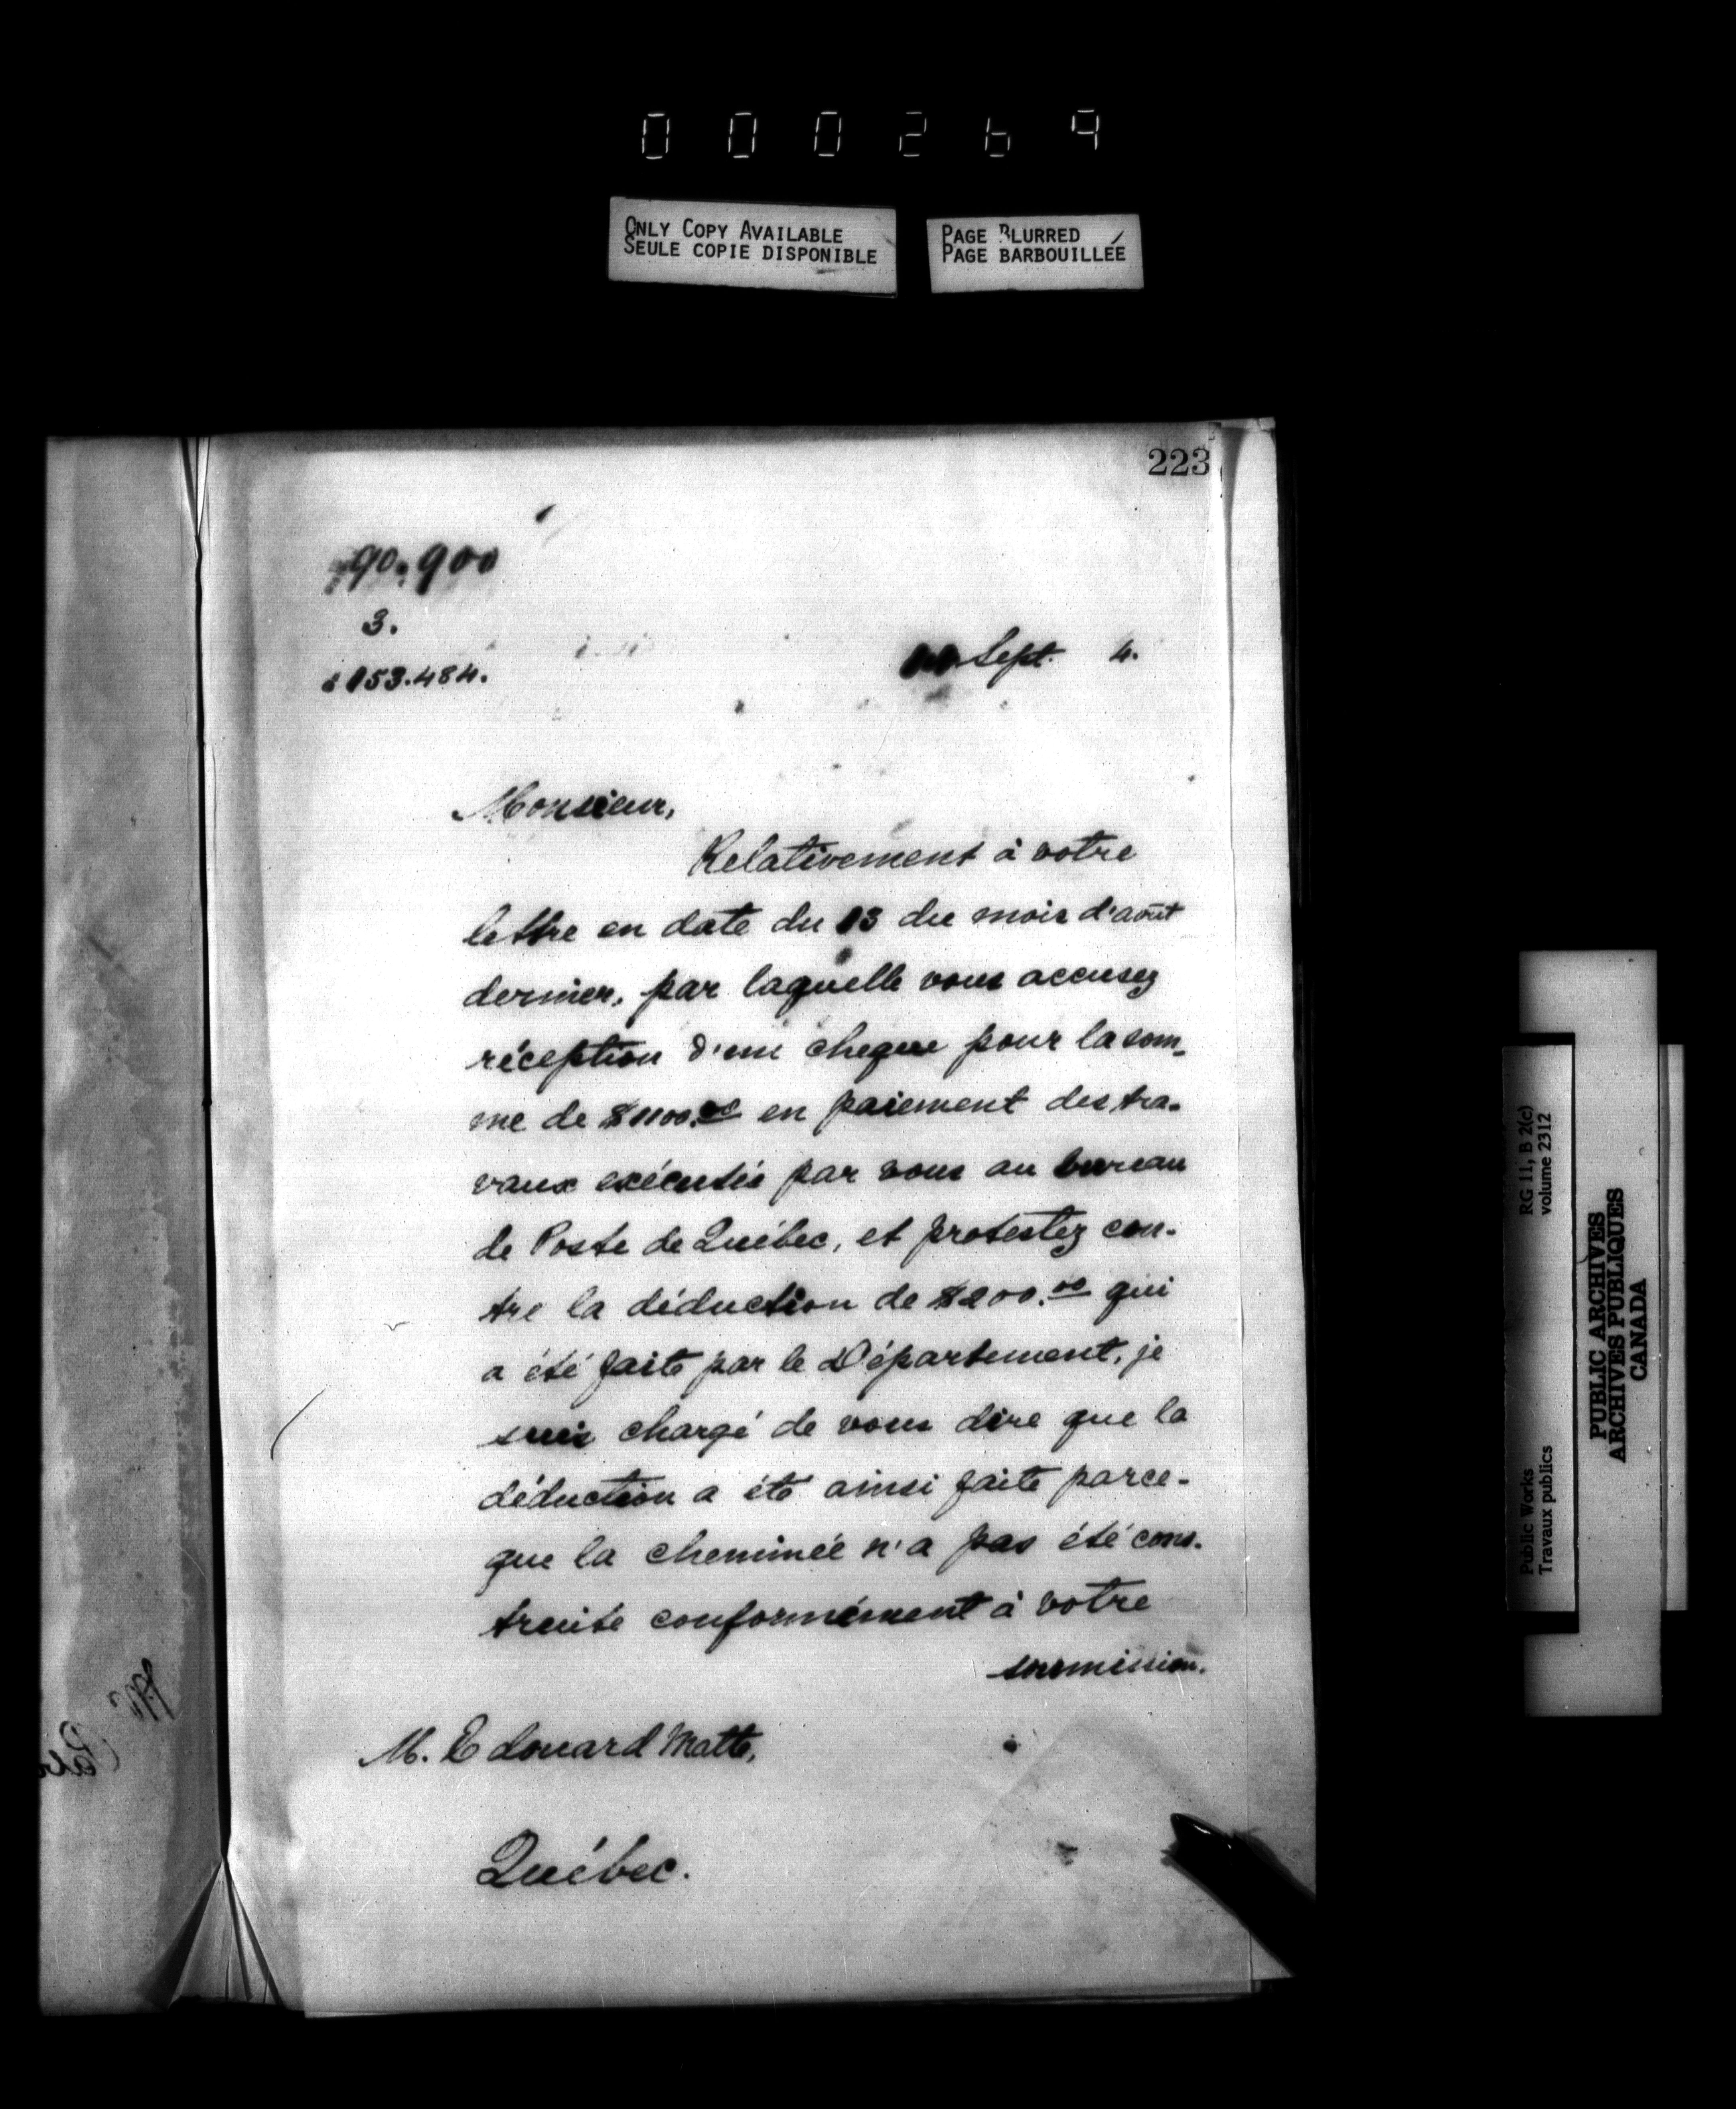 000269
ONLY COPY AVAILABLE
SEULE COPIE DISPONIBLE
PAGE BLURRED
PAGE BARBOUILLÉE
223
90.900
3.
153.484.
Sept. 4.
Monsieur,
Relativement à votre
lettre en date du 13 du mois d'août
dernier, par laquelle vous accusez
réception d'un cheque pour la som-
me de $1100.00 en paiement des tra-
vaux exécutés par vous au bureau
de Poste de Québec, et protestez con-
tre la déduction de $200.00 qui
a été faite par le Département, je
suis chargé de vous dire que la
déduction a été ainsi faite parce-
que la cheminée n'a pas été cons-
truite conformément à votre
soumission.
M. Edouard Matte,
Québec.
RG 11, B 2(c)
volume 2312
Public Works
Travaux publics
PUBLIC ARCHIVES
ARCHIVES PUBLIQUES
CANADA